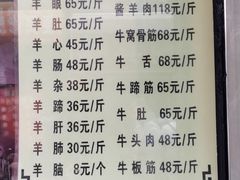 羊 眼 65元/斤
羊 肚 65元/斤
羊 心 45元/斤
羊 肠 48元/斤
羊 杂 38元/斤
羊 蹄 36元/斤
羊 肝 36元/斤
羊 肺 30元/斤
羊 脑 8元/个
酱羊肉118元/斤
牛窝骨筋68元/斤
牛 舌 68元/斤
牛蹄筋65元/斤
牛 肚 65元/斤
牛头肉48元/斤
牛板筋48元/斤